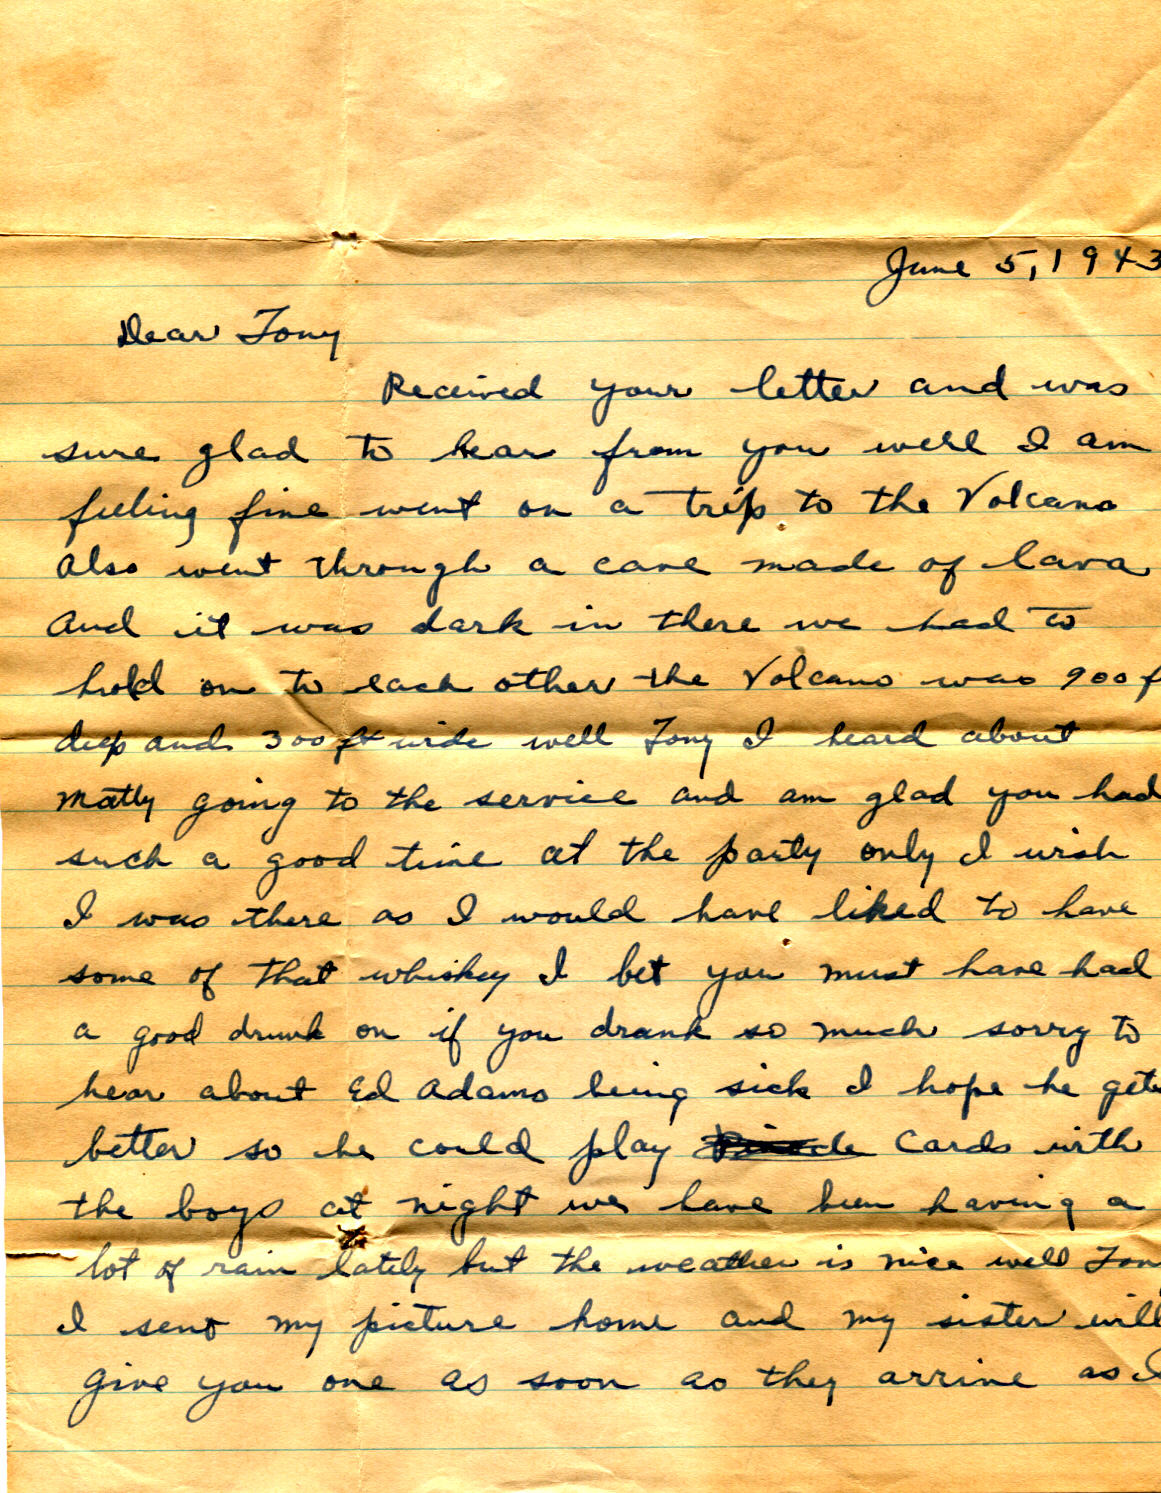 June 5, 1943
Dear Tony
Received your letter and was
sure glad to hear from you well I am
feeling fine went on a trip to the Volcano
also went through a cave made of lava
and it was dark in there we had to
hold on to each other the Volcano was 900 f
deep and 300 ft wide well Tony I heard about
Matty going to the service and am glad you had
such a good time at the party only I wish
I was there as I would have liked to have
some of that whiskey I bet you must have had
a good drunk on if you drank so much sorry to
hear about Ed Adams being sick I hope he gets
better so he could play Cards with
the boys at night we have been having a
lot of rain lately but the weather is nice well Ton
I sent my picture home and my sister will
give you one as soon as they arrive as I